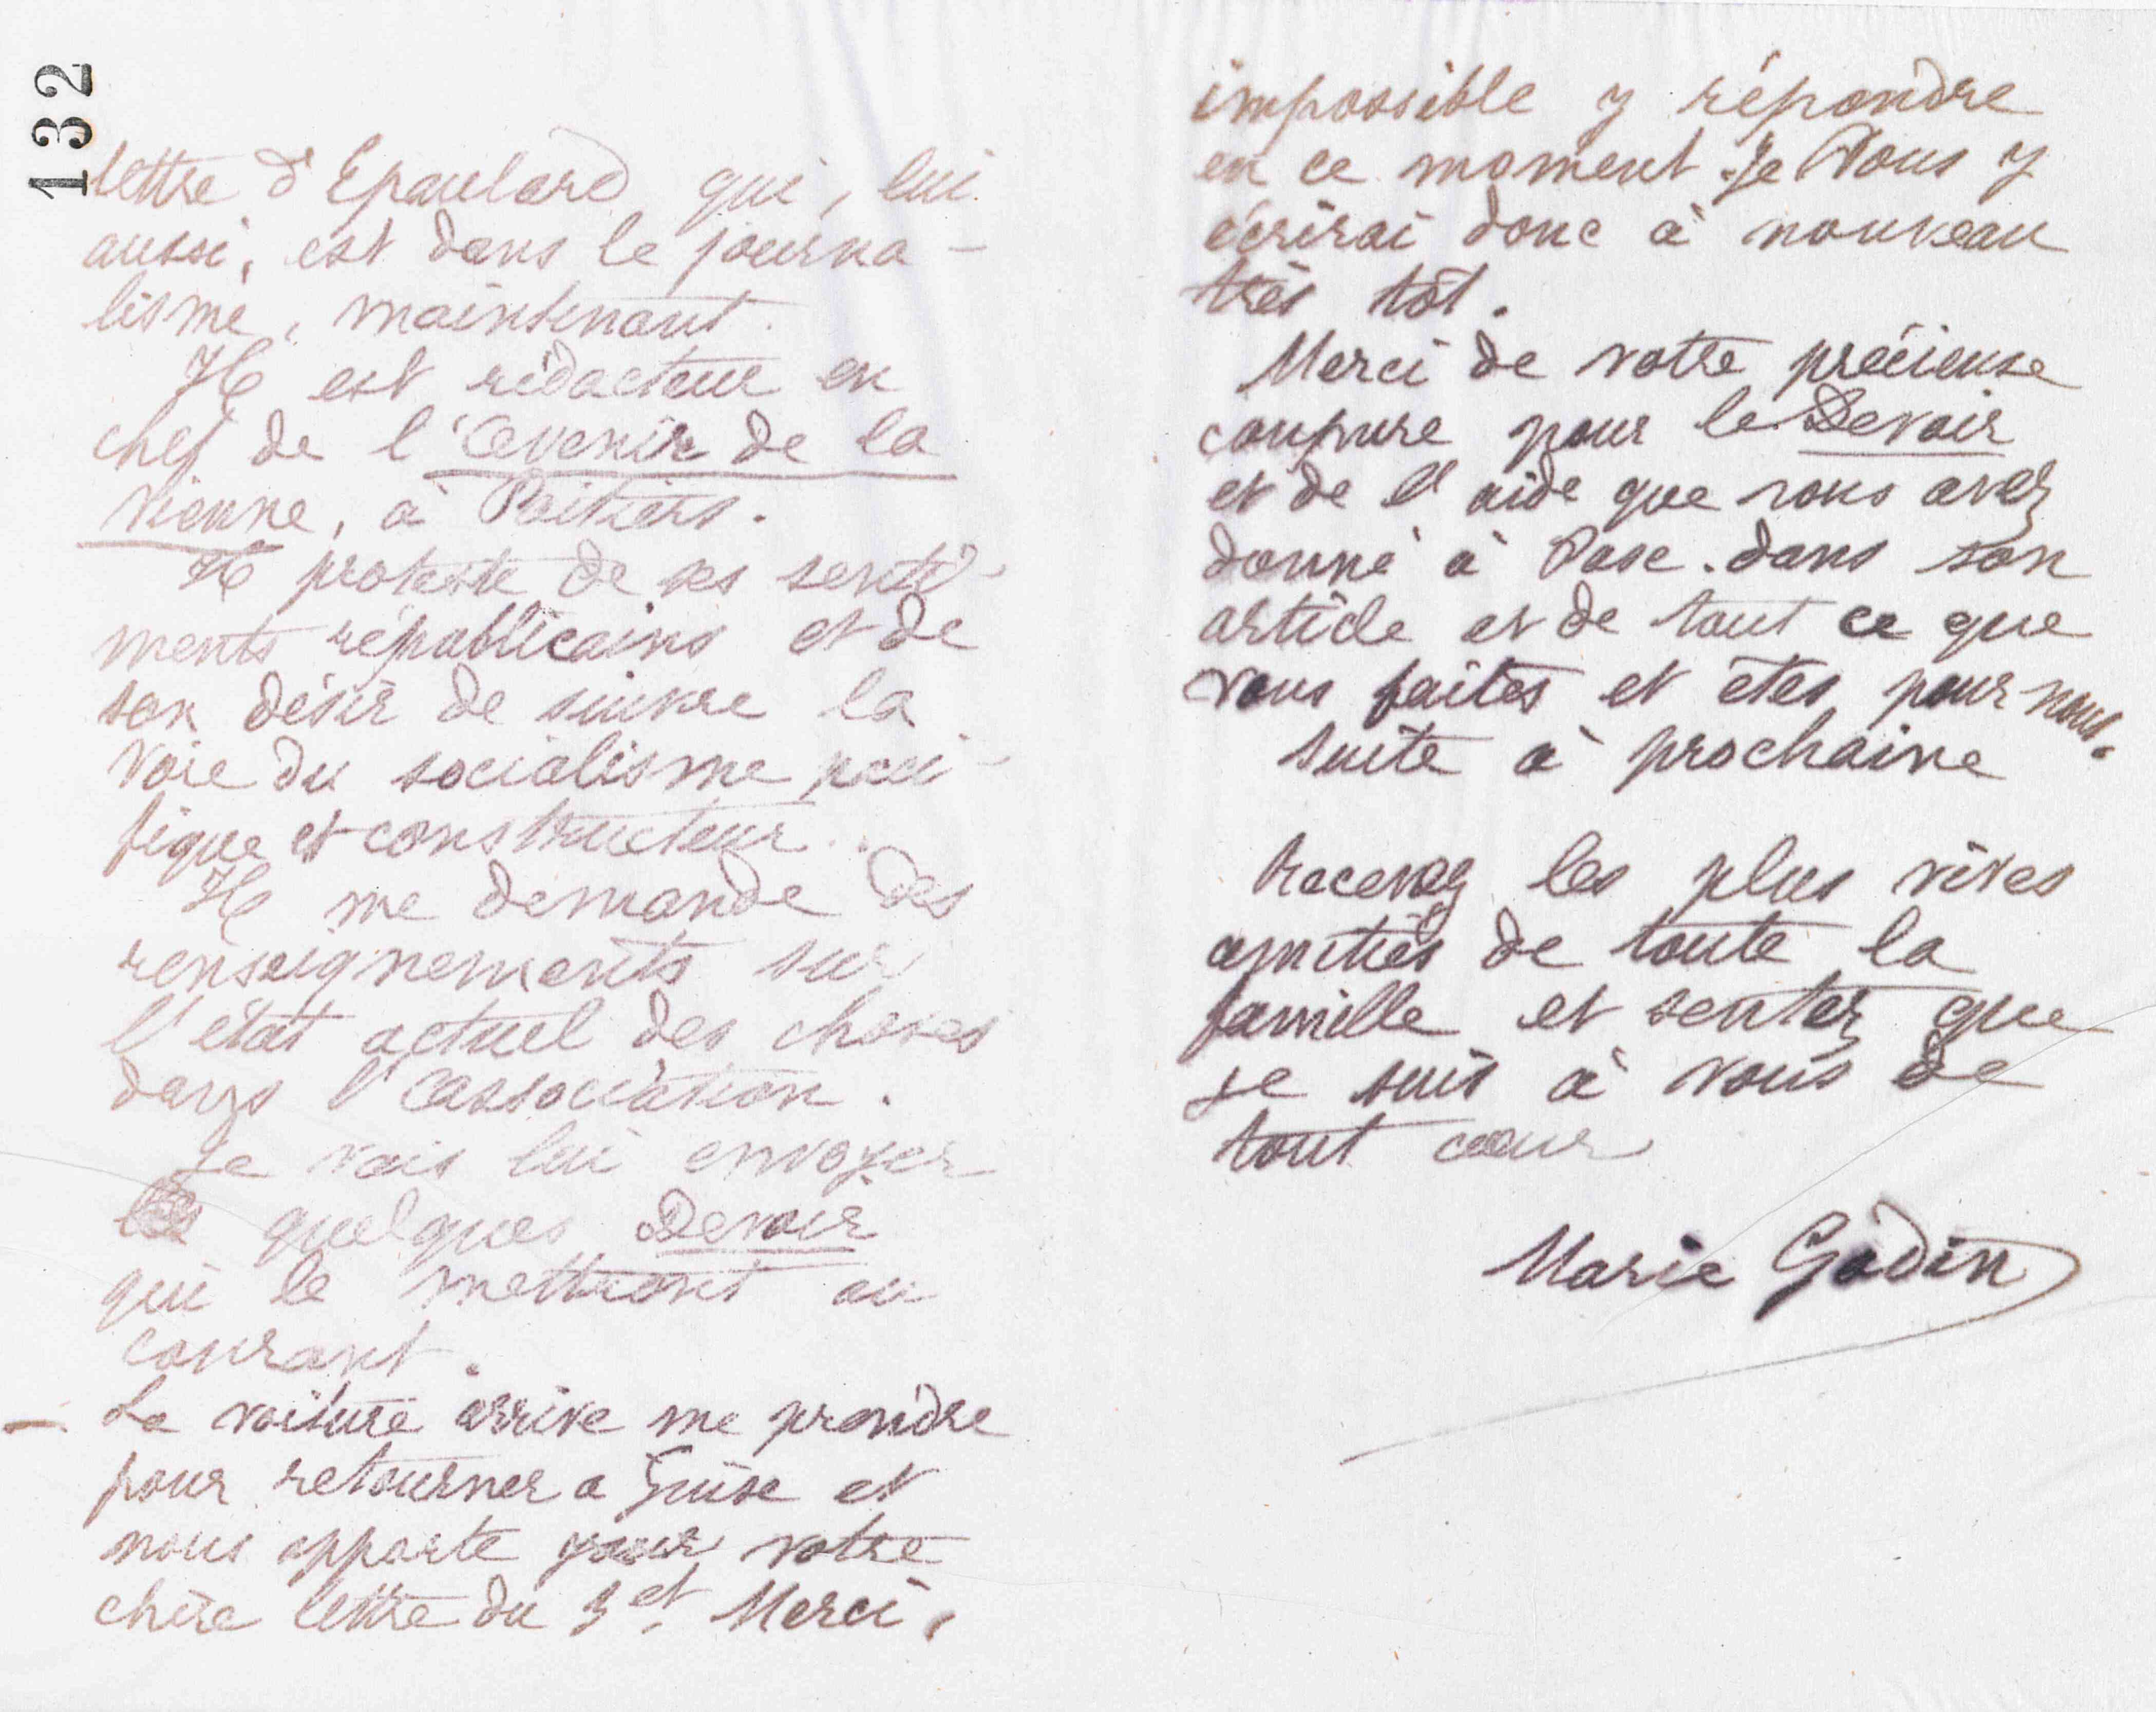 132
lettre d'Epaulard qui, lui
aussi, est dans le journa-
lisme, maintenant.
Il est rédacteur en
chef de l'Avenir de la
Vienne, à Poitiers.
Il proteste de ses senti-
ments républicains et de
son désir de suivre la
voie du socialisme paci-
fique et constructeur.
Il me demande des
renseignements sur
l'état actuel des choses
dans l'association.
Je vais lui envoyer
quelques Devoir
qui le mettront au
courant.
- La voiture arrive me prendre
pour retourner a Guise et
nous apporte votre
chère lettre du 3 et. Merci,
impossible y répondre
en ce moment. Je Vous y
écrirai donc à nouveau
très tôt.
Merci de votre précieuse
coupure pour le Devoir
et de l'aide que vous avez
donné à Pasc. dans son
article et de tout ce que
vous faites et êtes pour nous.
Suite à prochaine
Recevez les plus vives
amitiés de toute la
famille et sentez que
je suis à vous de
tout cœur
Marie Godin